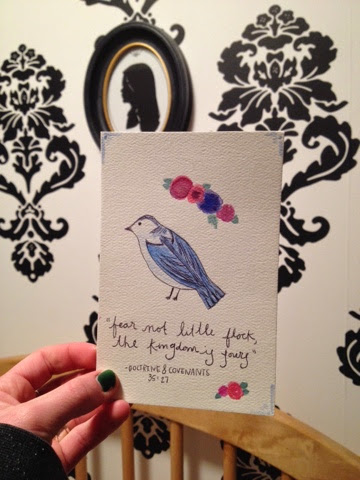 "fear not little flock,
the kingdom is yours"
-DOCTRINE & COVENANTS
35:27